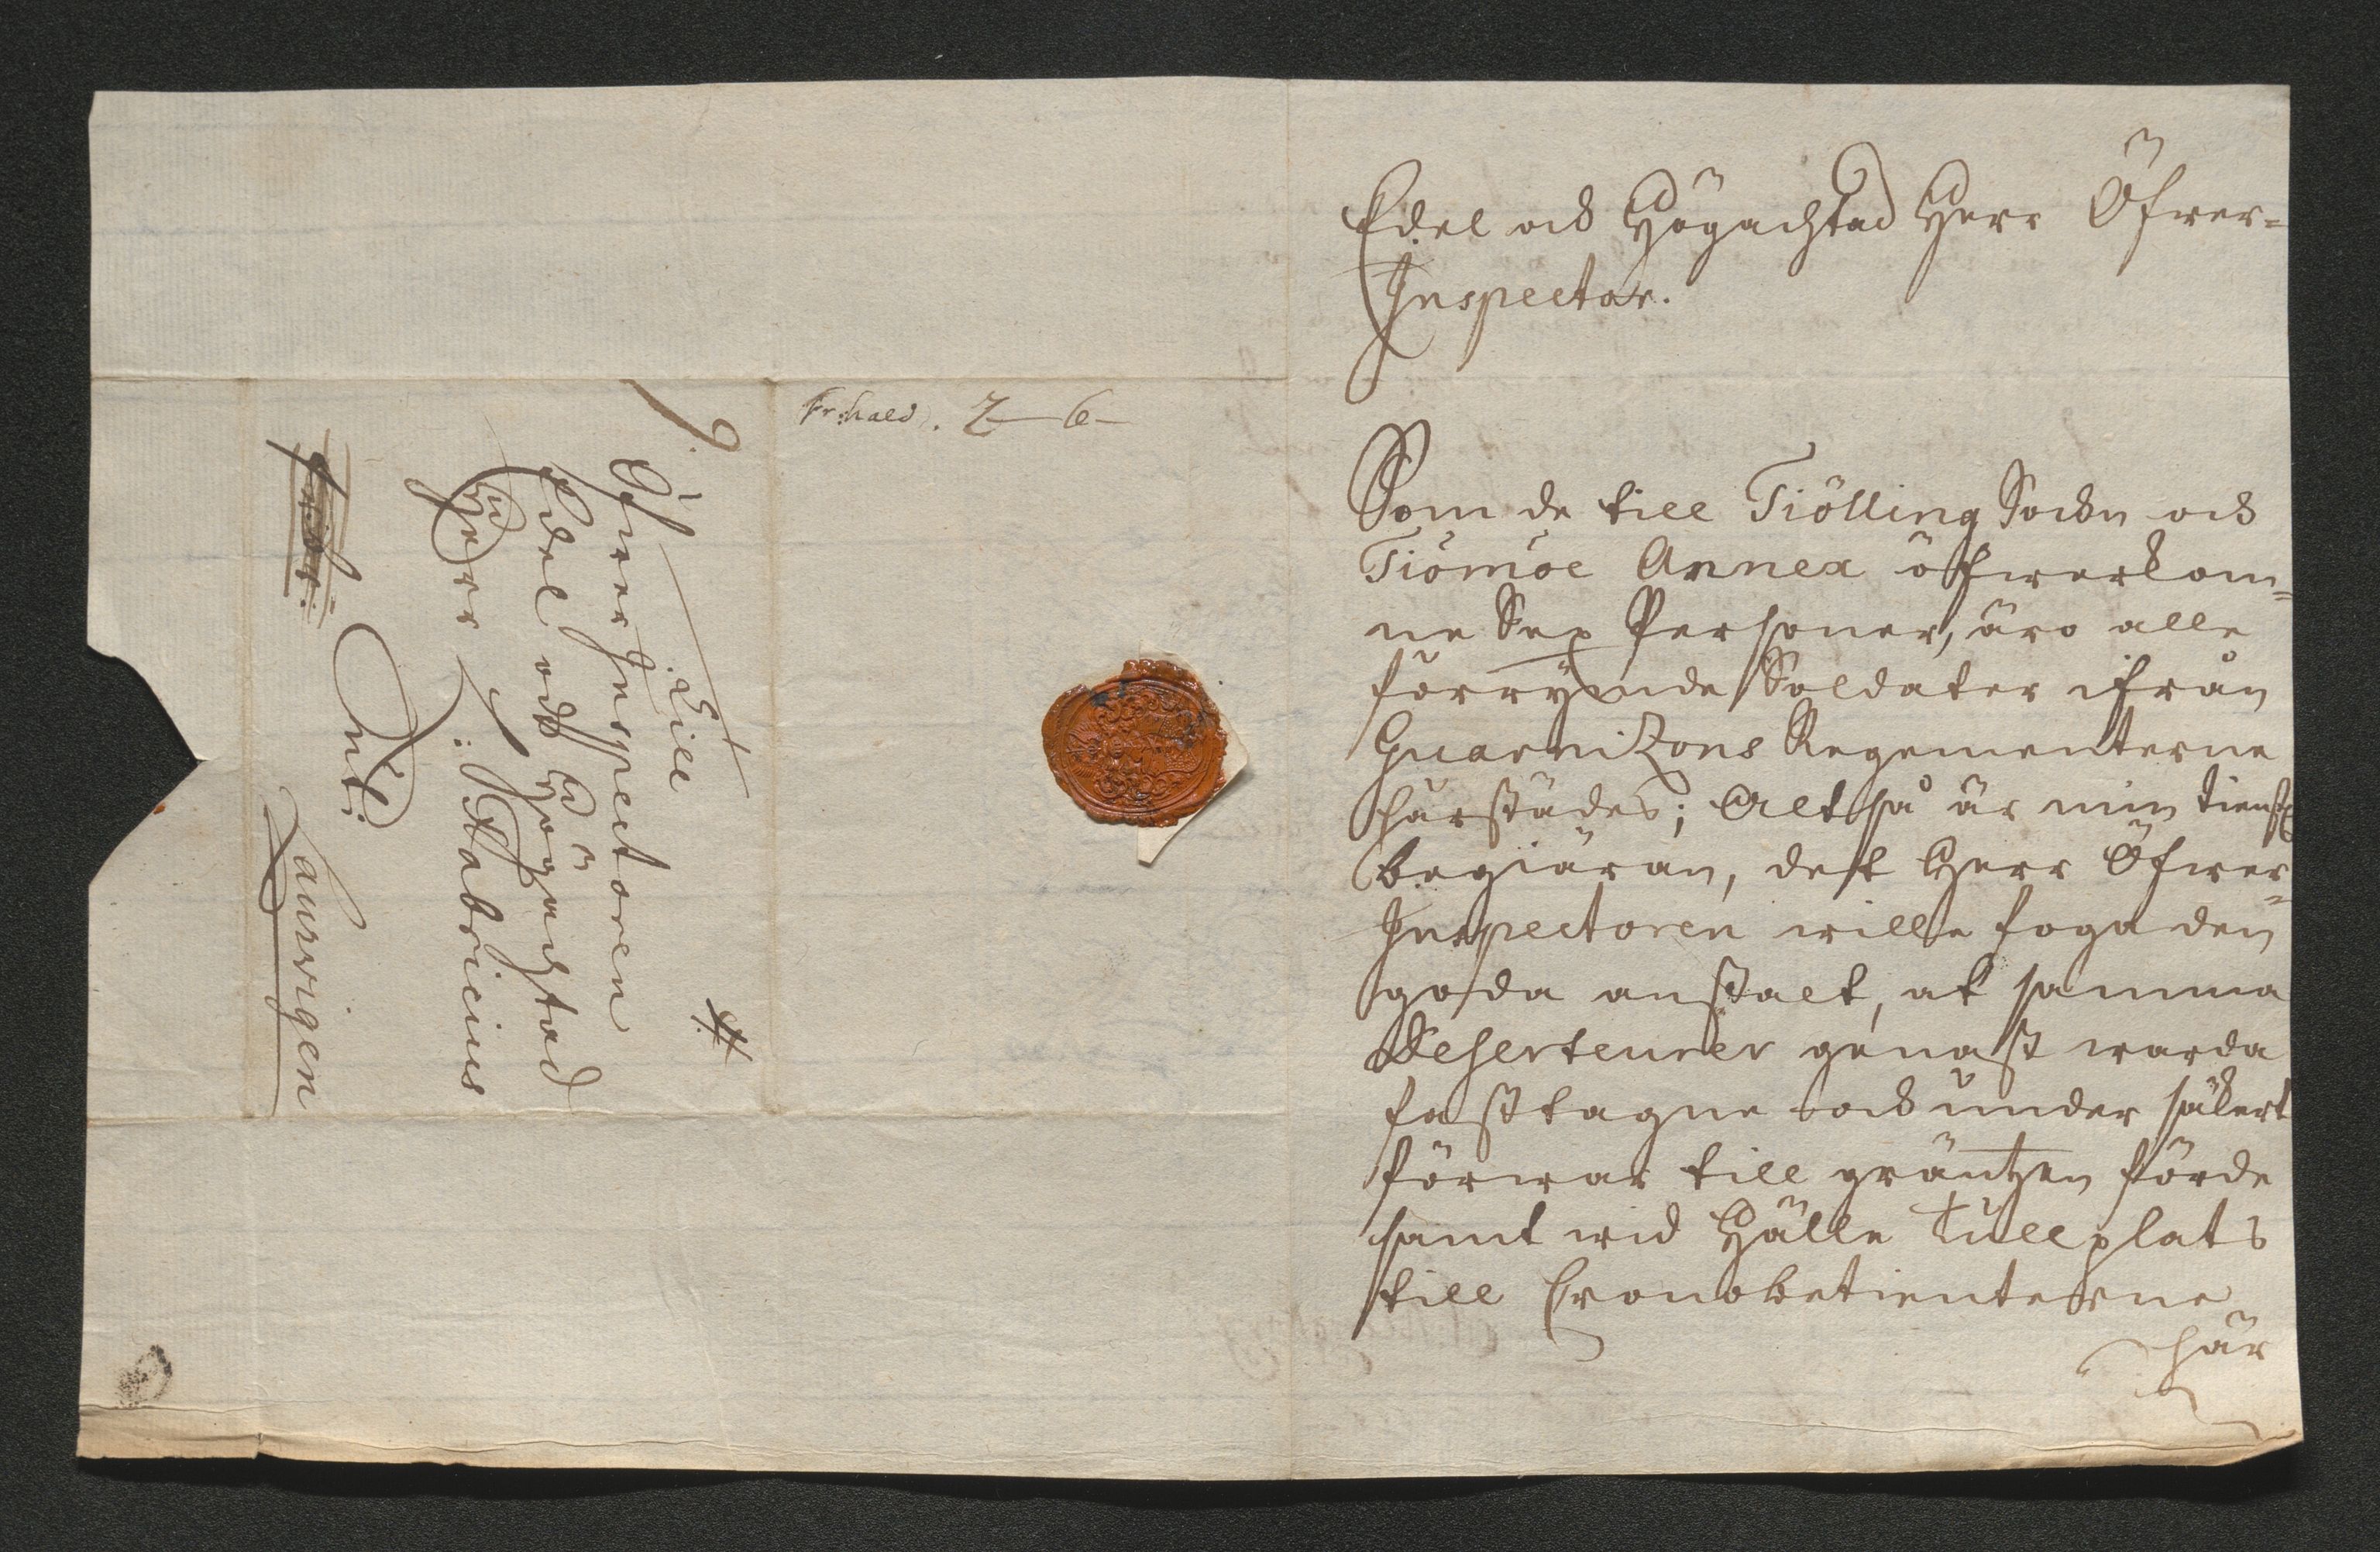 Fr: hald. 2 — 6 —
9.
Till
Öfwer Inspectoren
Edel och Högachtad
Herr J: Fabricius
uti
Laurwigen
Edel och Högachtad Herr Öfwer=
Inspector.
Som de till Tiölling Sockn och
Tiömöe Annex öfwerkom=
ne Sex Personer, äro alle
förrymde Soldater ifrån
Guarnizons Regementerne
härstädes; Altså är min tienstl
begiäran, det Herr Öfwer=
Inspectoren wille foga den
goda anstalt, at samma
Deserteurer genast warda
fasttagne och under säkert
förwar till gräntzen förde
samt wid Hälle Tullplats
till Cronobetienterne
här